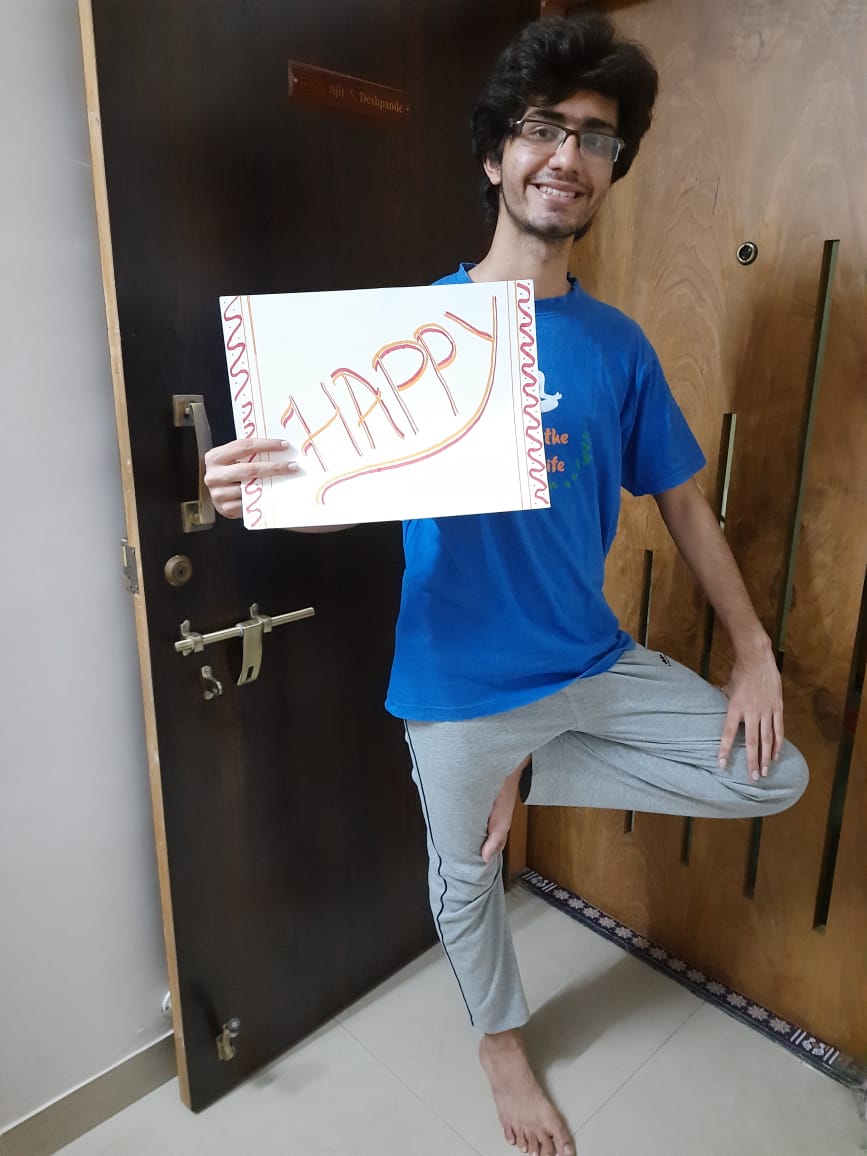 Ajit S Deshpande
HAPPY
the
ife